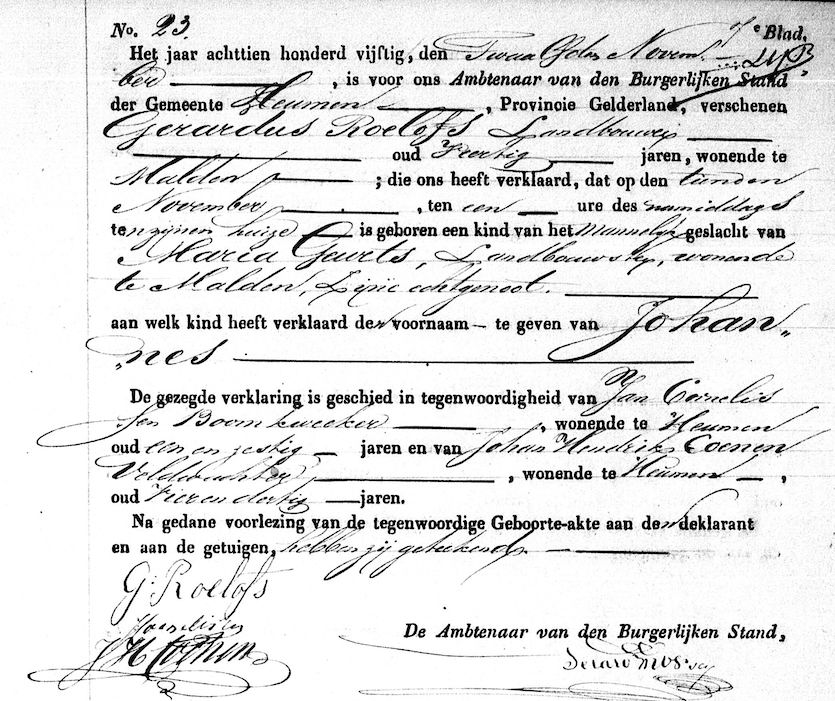 No. 23. 7e Blad.
Het jaar achttien honderd vijftig, den Twaalfden Novem-
ber, is voor ons Ambtenaar van den Burgerlijken Stand
der Gemeente Heumen, Provincie Gelderland, verschenen
Gerardus Roelofs Landbouwer
oud Veertig jaren, wonende te
Malden; die ons heeft verklaard, dat op den tienden
November, ten een ure des namiddags
ten zijnen huize is geboren een kind van het Mannelijk geslacht van
Maria Geurts, Landbouwster, wonende
te Malden, Zijne echtgenoot.
aan welk kind heeft verklaard den voornaam te geven van Johan„
„nes
De gezegde verklaring is geschied in tegenwoordigheid van Jan Cornelis
sen Boomkweeker, wonende te Heumen
oud een en zestig jaren en van Johan Hendrik Coenen
Veldwachter, wonende te Heumen,
oud Vier en dertig jaren.
Na gedane voorlezing van de tegenwoordige Geboorte-akte aan den deklarant
en aan de getuigen, hebben zij geteekend
G. Roelofs
JH Coenen
De Ambtenaar van den Burgerlijken Stand,